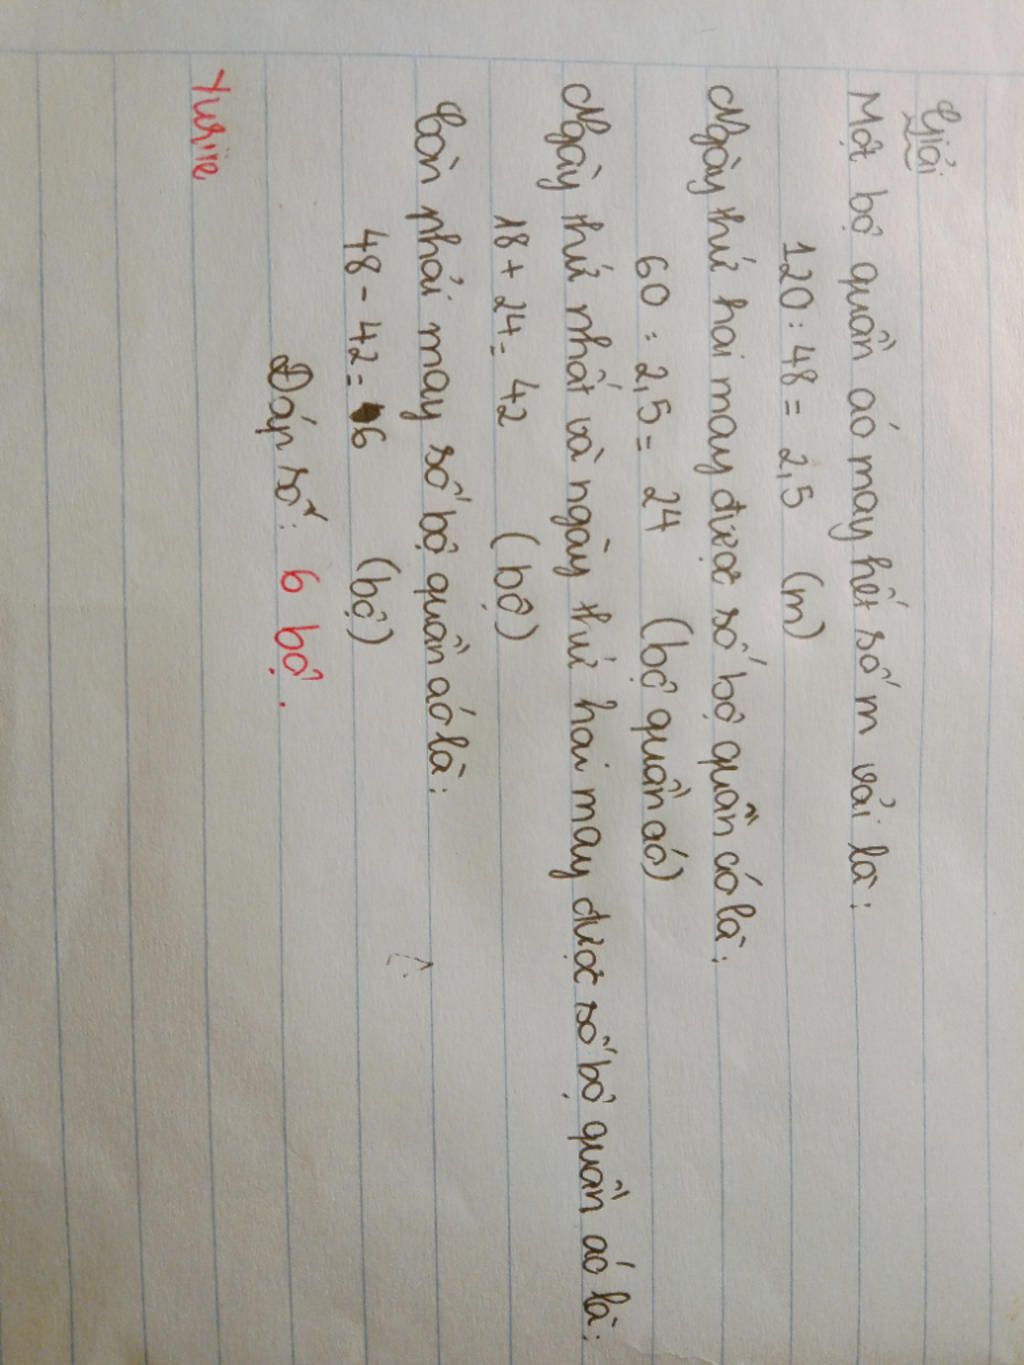 Giải
Một bộ quần áo may hết số m vải là:
120 : 48 = 2,5 (m)
Ngày thứ hai may được số bộ quần áo là:
60 : 2,5 = 24 (bộ quần áo)
Ngày thứ nhất và ngày thứ hai may được số bộ quần áo là:
18 + 24 = 42 (bộ)
Còn phải may số bộ quần áo là:
48 - 42 = 6 (bộ)
Đáp số: 6 bộ.
Yuriie